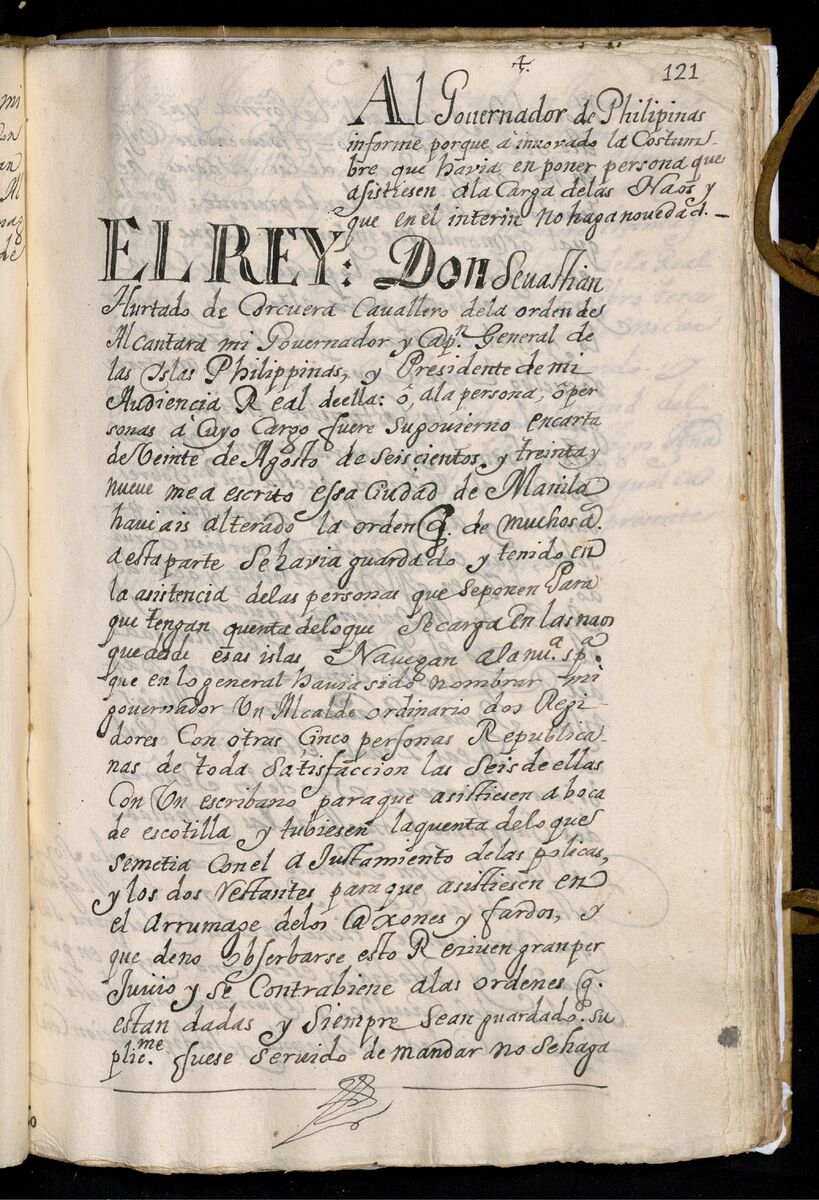 121
Al Gouernador de Philipinas
informe porque a innovado la Costum-
bre que havia en poner persona que
asistiesen ala Carga delas Naos, y
que en el interin no haga novedad.
EL REY: Don Sevastian
Hurtado de Corcuera Cauallero dela orden de
Alcantara mi Gouernador y Capn. General de
las Islas Philippinas, y Presidente de mi
Audiencia Real deella: ó, ala persona, ó per
sonas a Cuyo Cargo fuere sugouierno en carta
de Veinte de Agosto de seiscientos, y treinta y
nueve me a escrito essa Ciudad de Manila
haviais alterado la orden q. de muchos as.
aesta parte Sehavia guardado y tenido en
la asistencia delas personas que seponen Para
que tengan quenta deloque Secarga en las naos
quedesde esas islas Navegan ala nua. spa.
que en lo general haviasido nombrar mi
governador Un Alcalde ordinario dos Regi-
dores Con otras Cinco personas Republica-
nas de toda satisfaccion las Seis de ellas
Con Un escribano paraque asistiesen a boca
de escotilla y tubiesen laquenta delo que
semetia Conel a Justamiento delas polıcas,
y los dos restantes paraque asistiesen en
el Arrumage delos Caxones y fardos, y
que deno obserbarse esto Reziven gran per
Juiiio y se Contrabiene alas ordenes q.
estan dadas y siempre sean guardado. su
plicme. fuese servido de mandar no Sehaga